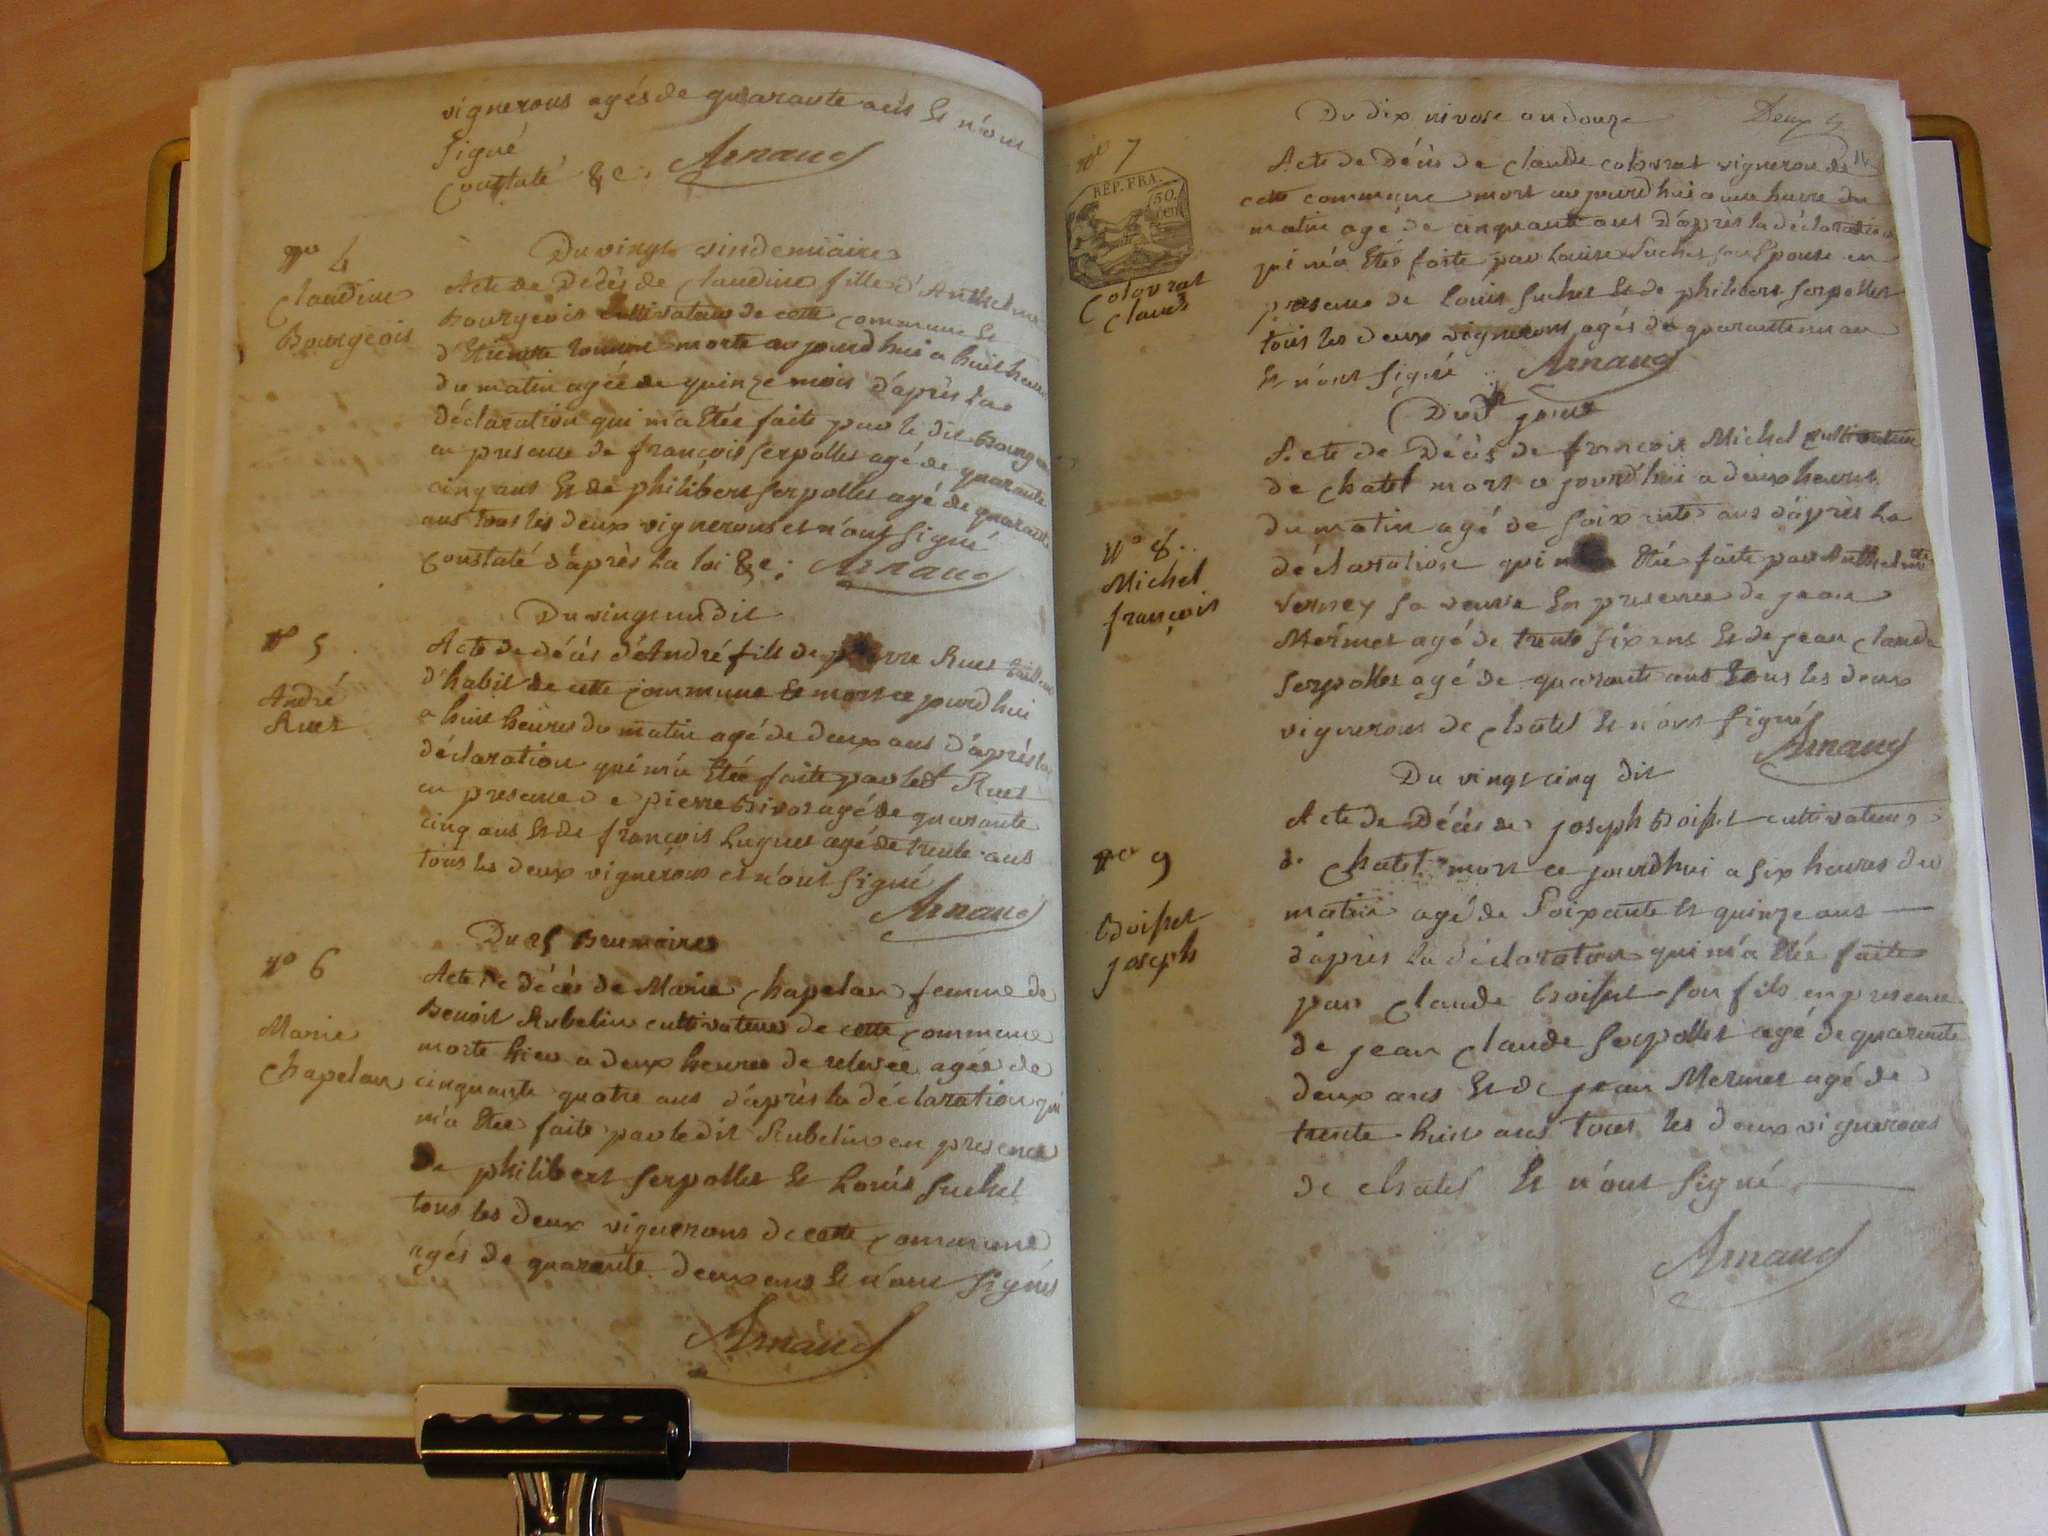 vignerons agés de quarante ans Et n'ont
signé
Constaté &c. Arnaud
Du vingt vindemiaire
n° 4
Claudine
Bourgeois
Acte de Décès de Claudine fille d'Anthelme
Bourgeois Cultivateur de cette commune Et
d'Etiennette morte au jourdhui a huit heures
du matin agée de quinze mois d'après la
déclaration qui m'a Etée faite par le dit Bourgeois
en presence de françois Serpollet agé de quarante
cinq ans Et de philibert Serpollet agé de quarante
ans tous les deux vignerons et n'ont signé
Constaté d'après la loi &c. Arnaud
Du vingt un dit
n° 5
André
Ruet
Acte de décès d'André fils de pierre Ruet tailleur
d'habit de cette commune Et mort ce jourdhui
a huit heures du matin agé de deux ans d'après la
déclaration qui m'a Etée faite par led.t Ruet
en presence de pierre Bivot agé de quarante
cinq ans Et de françois huguet agé de trente ans
tous les deux vignerons et n'ont signé
Arnaud
Du 25 Brumaire
n° 6
Marie
Chapelan
Acte de décès de Marie Chapelan femme de
Benoit Rubelin cultivateur de cette commune
morte hier a deux heures de relevée agée de
cinquante quatre ans d'après la déclaration qui
m'a Etée faite par le dit Rubelin en presence
De philibert Serpollet Et Louis Suchet
tous les deux vignerons de cette commune
agés de quarante deux ans Et n'ont signés
Arnaud
Du dix nivose an douze
Deux
n° 7
REP. FRA.
50.
cent
Colovrat
Claude
Acte de Décès de Claude Colovrat vigneron de
cette commune mort au jourdhui a une heure du
matin agé de cinquante ans d'après la déclaration
qui m'a Etée faite par Louise Suchet son Epouse en
presence de Louis Suchet Et de philibert Serpollet
tous les deux vignerons agés de quarante un an
Et n'ont signé Arnaud
Du d.t jour
n° 8
Michel
françois
Acte de Décès de françois Michel cultivateur
de Chatel mort ce jourd'hui a deux heures
du matin agé de soixante ans d'après la
déclaration qui m'a Etée faite par Anthelmette
Verney sa veuve En presence de jean
Mermet agé de trente six ans Et de jean Claude
Serpollet agé de quarante ans tous les deux
vignerons de Chatel Et n'ont signé
Arnaud
Du vingt cinq dit
n° 9
Boisset
joseph
Acte de Décès de joseph Boisset cultivateur
de Chatel mort ce jourdhui a six heures du
matin agé de soixante Et quinze ans
d'après la déclaration qui m'a Etée faite
par Claude Boisset son fils en presence
de jean Claude Serpollet agé de quarante
deux ans Et de jean Mermet agé de
trente huit ans tous les deux vignerons
de Chatel Et n'ont signé
Arnaud